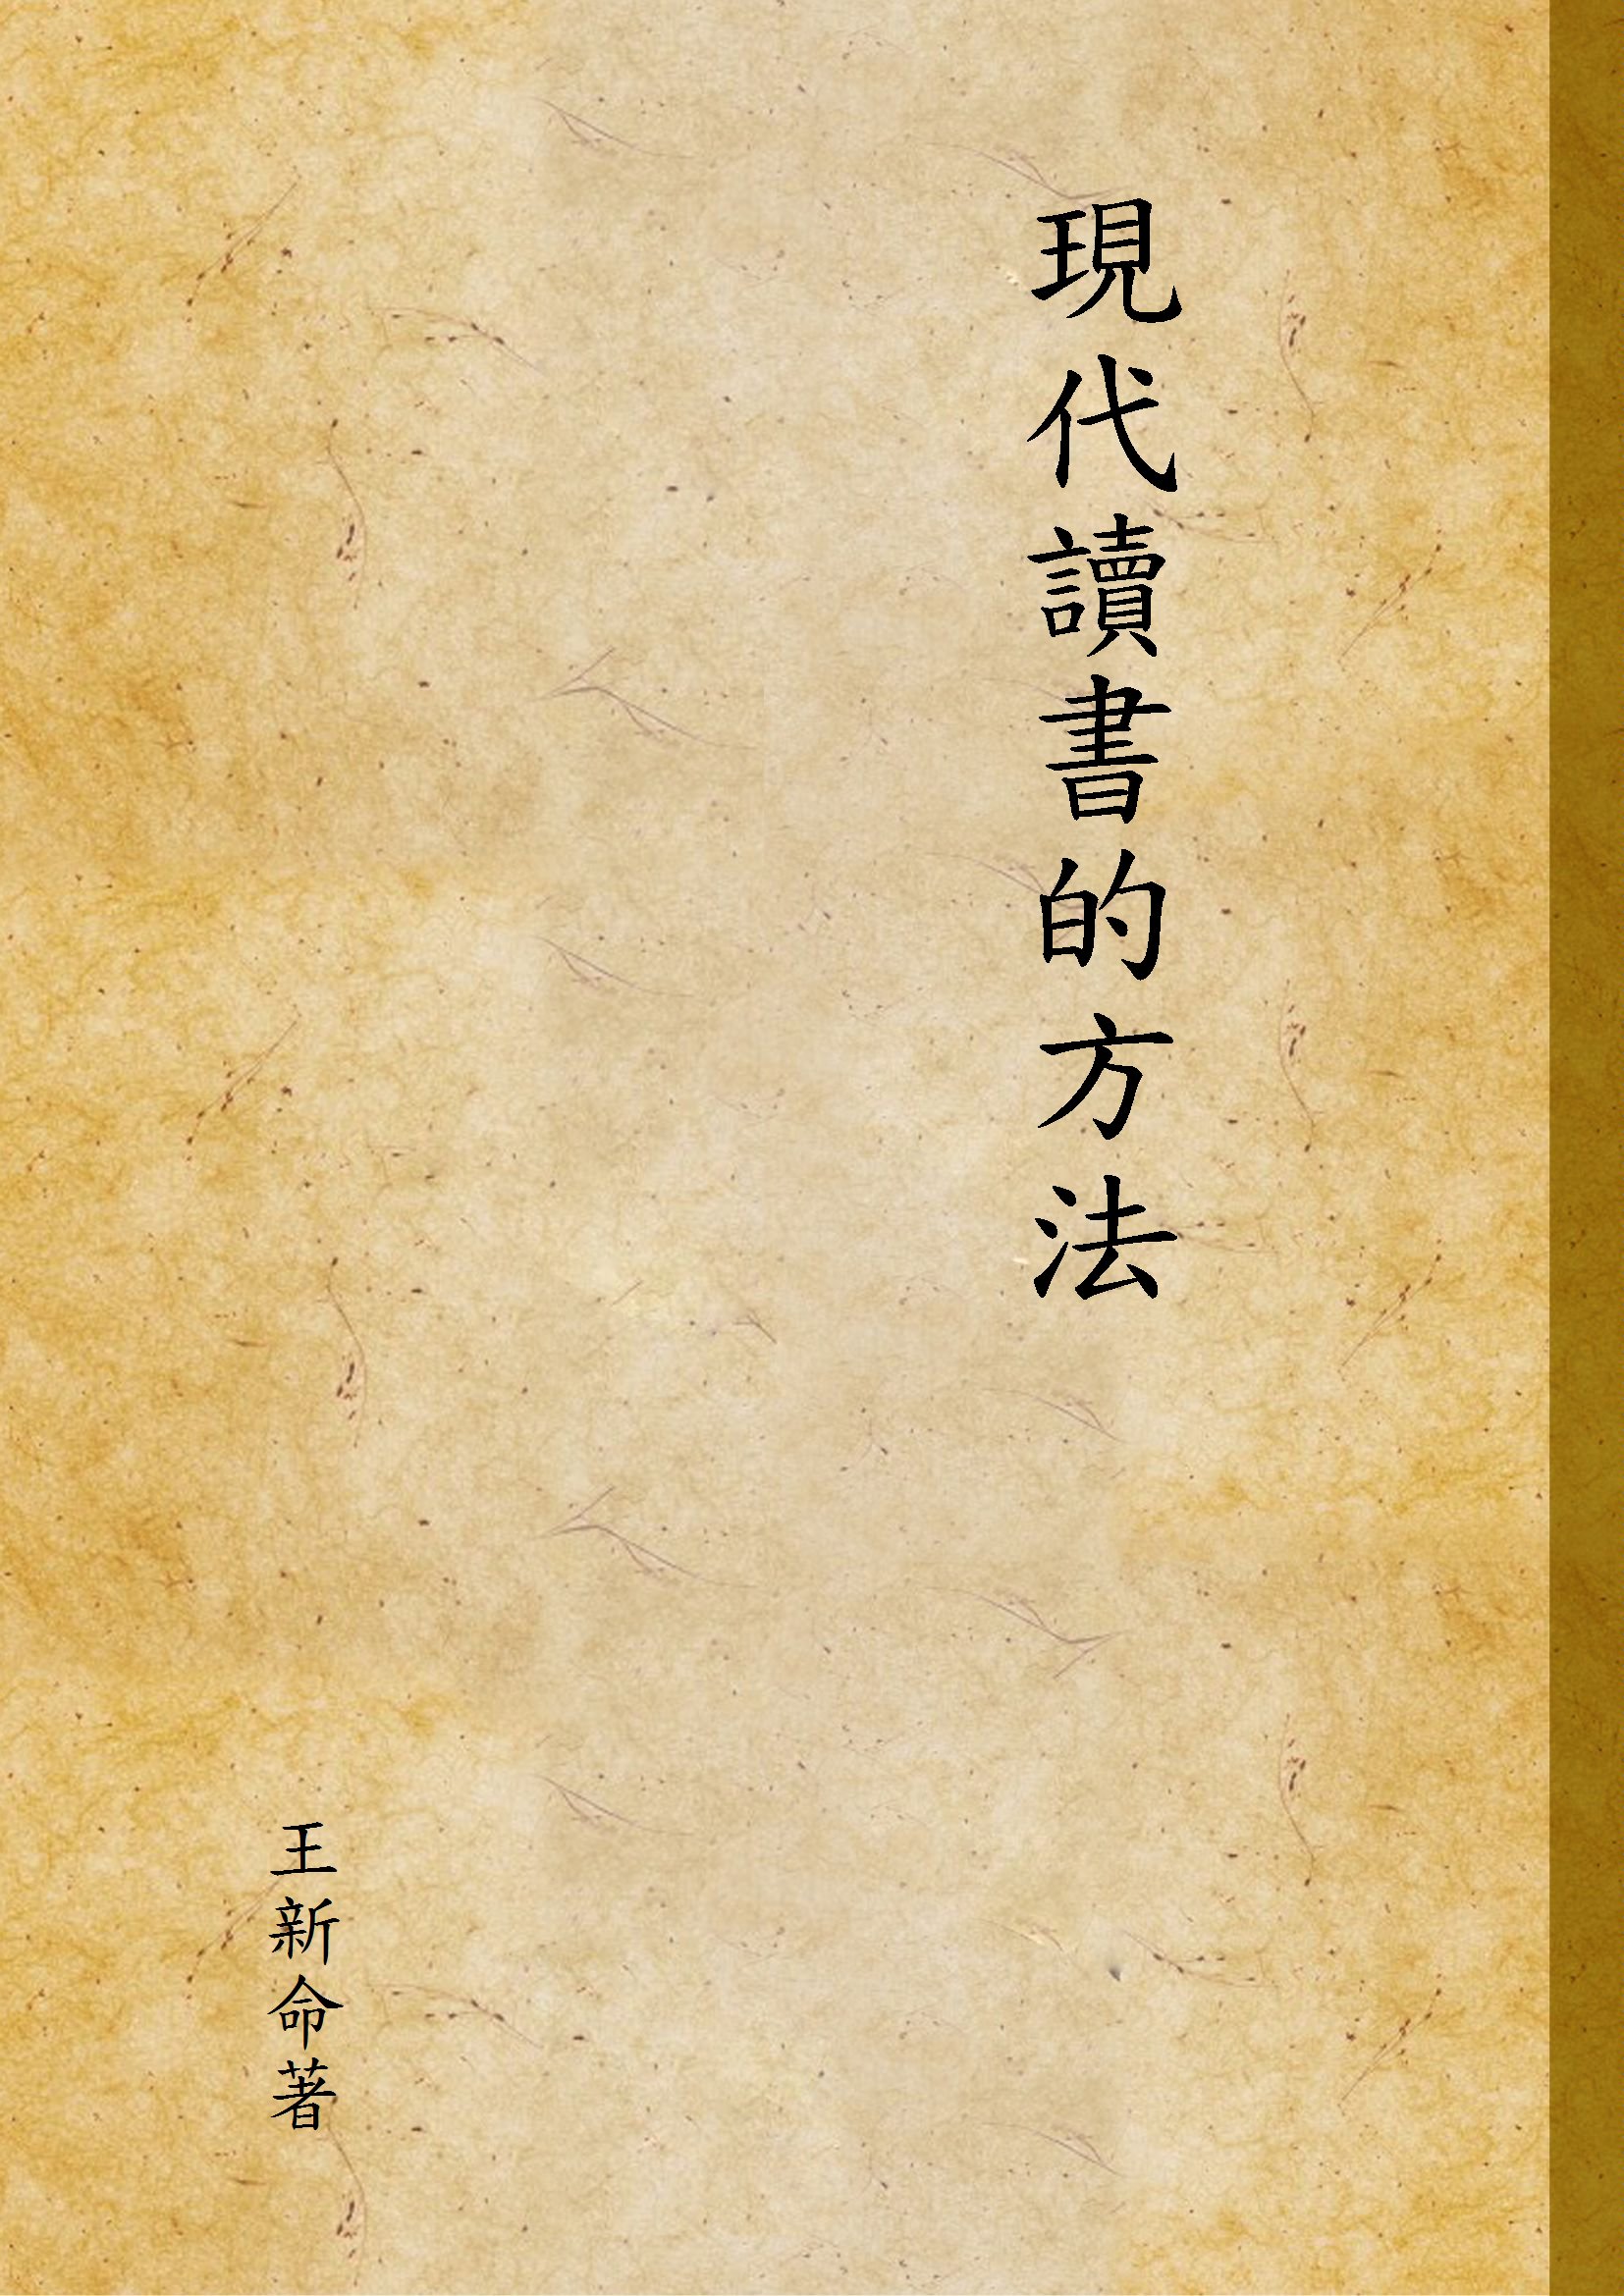 現代讀書的方法
王新命著